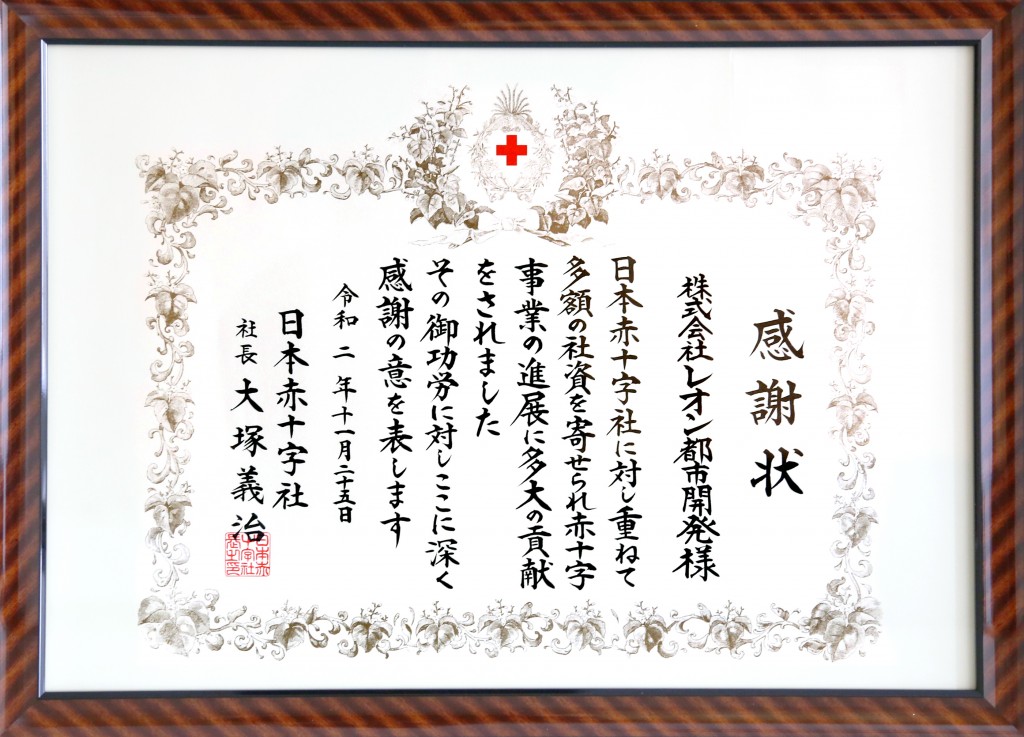 感謝状
株式会社レオン都市開発様
日本赤十字社に対し重ねて
多額の社資を寄せられ赤十字
事業の進展に多大の貢献
をされました
その御功労に対しここに深く
感謝の意を表します
令和二年十一月二十五日
日本赤十字社
社長 大塚義治
日本赤
十字社
長之印